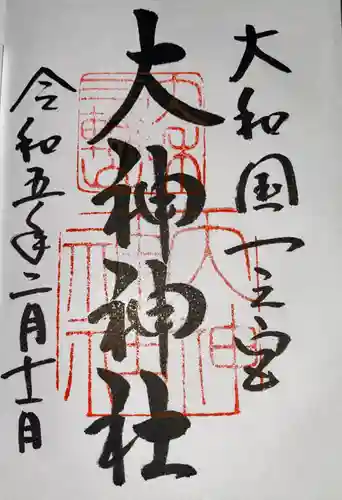 大和国一之宮
大神神社
令和五年二月十一日